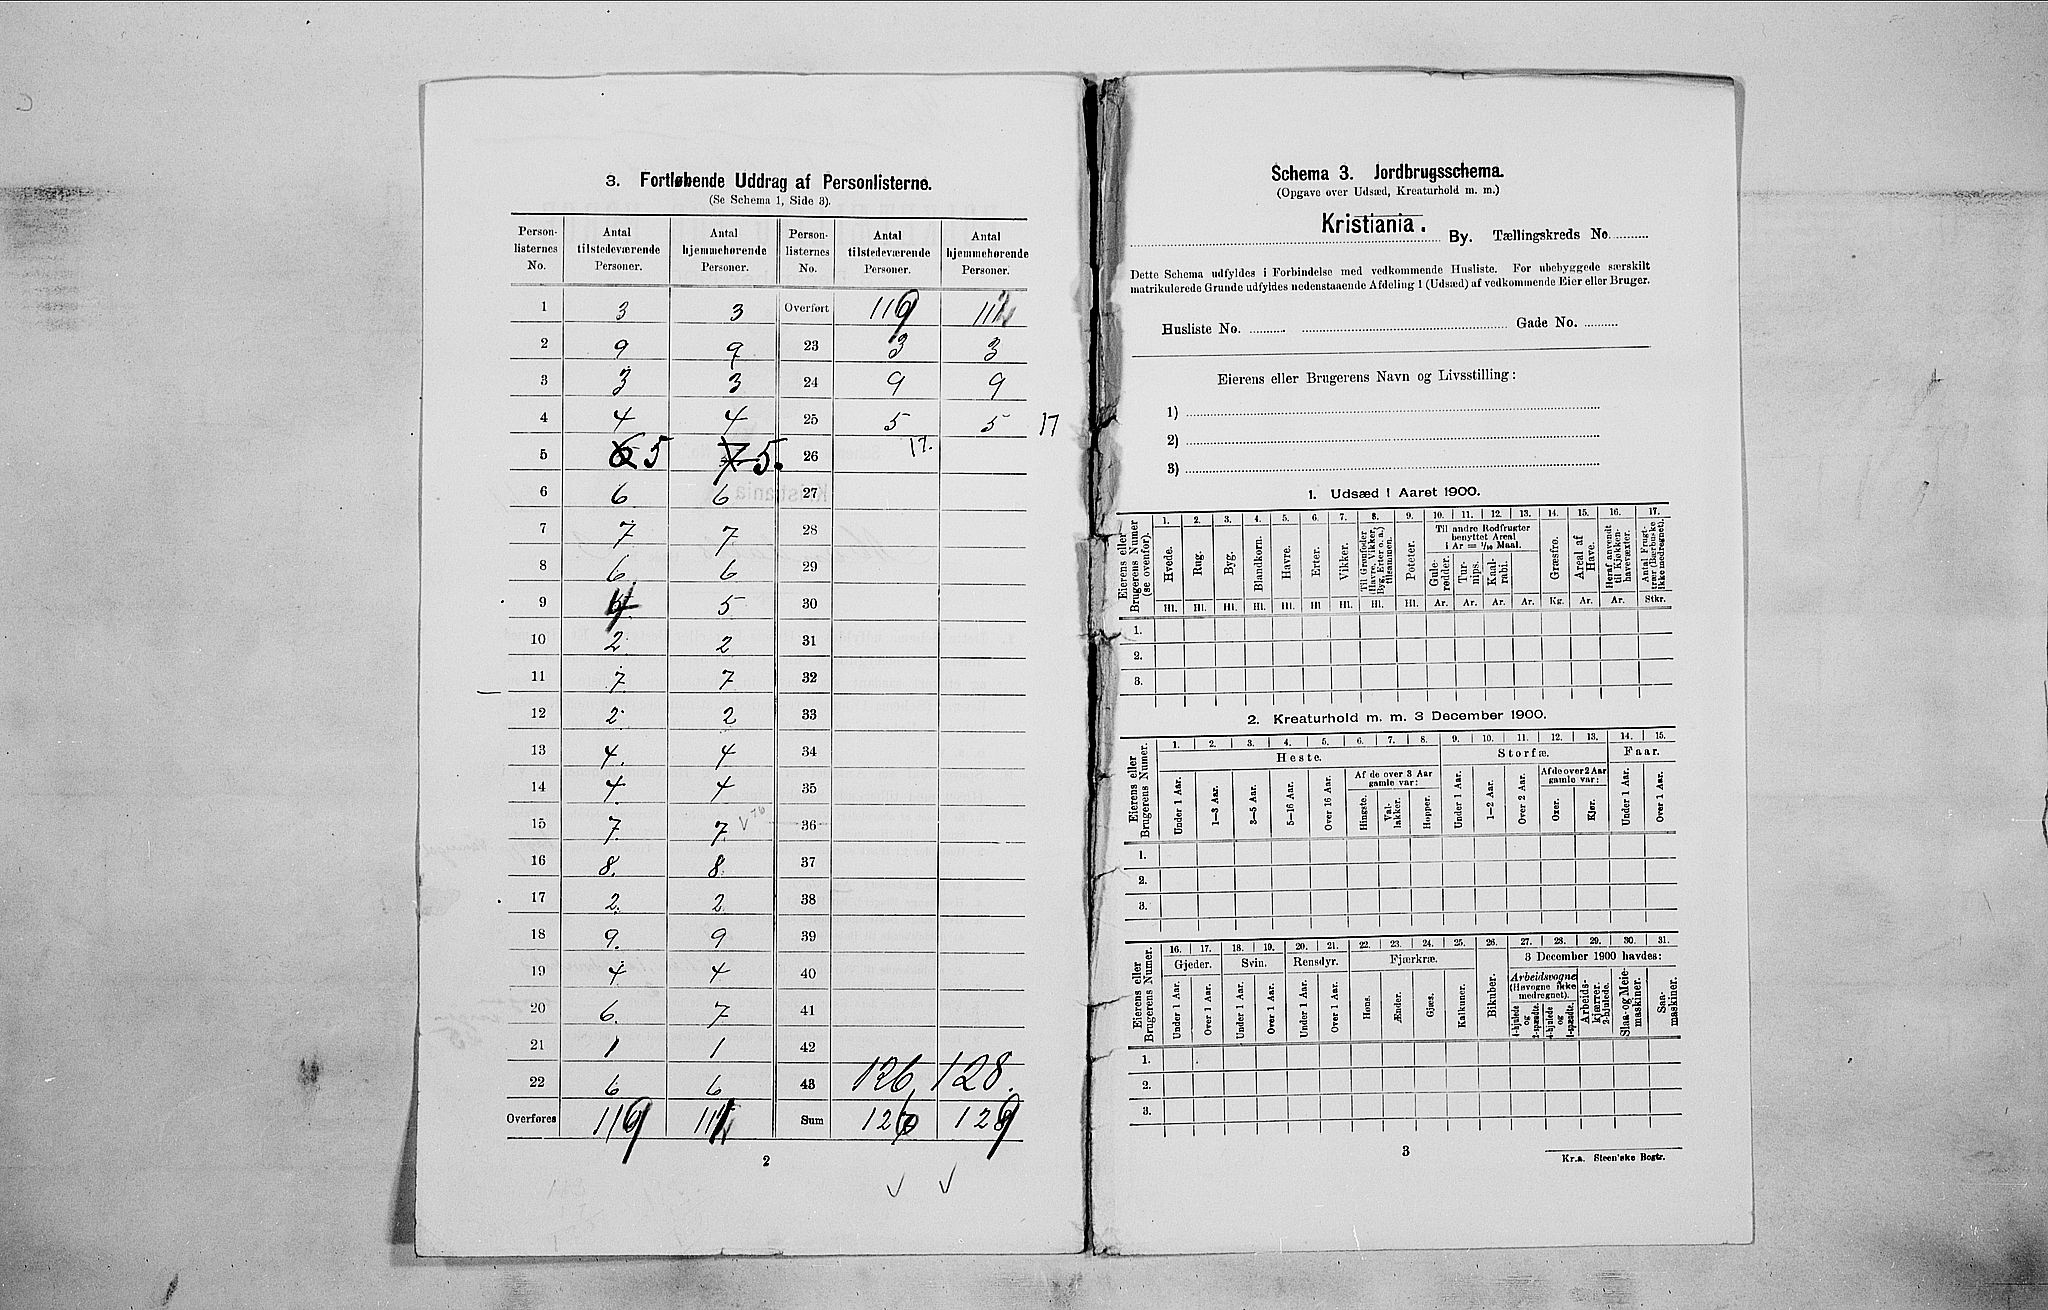 3. Fortløbende Uddrag af Personlisterne.
(Se Schema 1, Side 3).
Person-listernes No. Antal tilstedeværende Personer. Antal hjemmehørende Personer. Person-listernes No. Antal tilstedeværende Personer. Antal hjemmehørende Personer.
1 3 3 Overført
2 9 9 23 3 3
3 3 3 24 9 9
4 4 4 25 5 5 17
5 6 5 7 5. 26 17.
6 6 6 27
7 7 7 28
8 6. 6 29
9 4 5 30
10 2. 2 31
11 7. 7 32
12 2 2 33
13 4. 4 34
14 4. 4 35
15 7. 7. 36
16 8. 8. 37
17 2. 2 38
18 9. 9 39
19 4 4 40
20 6. 7 41
21 1 1 42
22 6 6 43 126. 128.
Overføres Sum
2
Schema 3. Jordbrugsschema.
(Opgave over Udsæd, Kreaturhold m. m.)
Kristiania. By. Tællingskreds No.
Dette Schema udfyldes i Forbindelse med vedkommende Husliste. For ubebyggede særskilt
matrikulerede Grunde udfyldes nedenstaaende Afdeling 1 (Udsæd) af vedkommende Eier eller Bruger.
Husliste No. Gade No.
Eierens eller Brugerens Navn og Livsstilling:
1)
2)
3)
1. Udsæd i Aaret 1900.
Eierens eller Brugerens Numer (se ovenfor).
1. 2. 3. 4. 5. 6. 7. 8. 9. 10. 11. 12. 13. 14. 15. 16. 17.
Hvede. Rug. Byg. Blandkorn. Havre. Erter. Vikker. Til Grønfoder (Havre, Vikker, Byg, Erter o. a.) tilsammen. Poteter. Til andre Rodfrugter benyttet Areal i Ar = 1/10 Maal. Gule-rødder. Tur-nips. Kaal-rabi. Græsfrø. Areal af Have. Heraf anvendt til Kjøkken-havevæxter. Antal Frugt-trær (bærbuske ikke medregnet).
Hl. Hl. Hl. Hl. Hl. Hl Hl. Hl. Hl. Ar. Ar. Ar. Ar. Kg. Ar. Ar. Stkr.
1.
2.
3.
2. Kreaturhold m. m. 3 December 1900.
Eierens eller Brugerens Numer.
1. 2. 3. 4. 5. 6. 7. 8. 9. 10. 11. 12. 13. 14. 15.
Heste. Storfæ. Faar.
Under 1 Aar. 1—3 Aar. 3—5 Aar. 5—16 Aar. Over 16 Aar. Af de over 3 Aar gamle var: Hingste. Val-lakker. Hopper. Under 1 Aar. 1—2 Aar. Over 2 Aar. Af de over 2 Aar gamle var: Oxer. Kjør. Under 1 Aar. Over 1 Aar.
1.
2.
3.
Eierens eller Brugerens Numer.
16. 17. 18. 19. 20. 21. 22. 23. 24. 25. 26. 27. 28. 29. 30. 31.
Gjeder. Svin. Rensdyr. Fjærkræ. Bikuber. 3 December 1900 havdes:
Under 1 Aar. Over 1 Aar. Under 1 Aar. Over 1 Aar. Under 1 Aar. Over 1 Aar. Høns. Ænder. Gjæs. Kalkuner. Arbeidsvogne (Høvogne ikke medregnet). 4-hjulede og 2-spændte. 4-hjulede og 1-spændte. Arbeids-kjærrer. 2-hjulede. Slaa- og Meie-maskiner. Saa-maskiner.
1.
2.
3.
3
Kr.a. Steen'ske Bogtr.